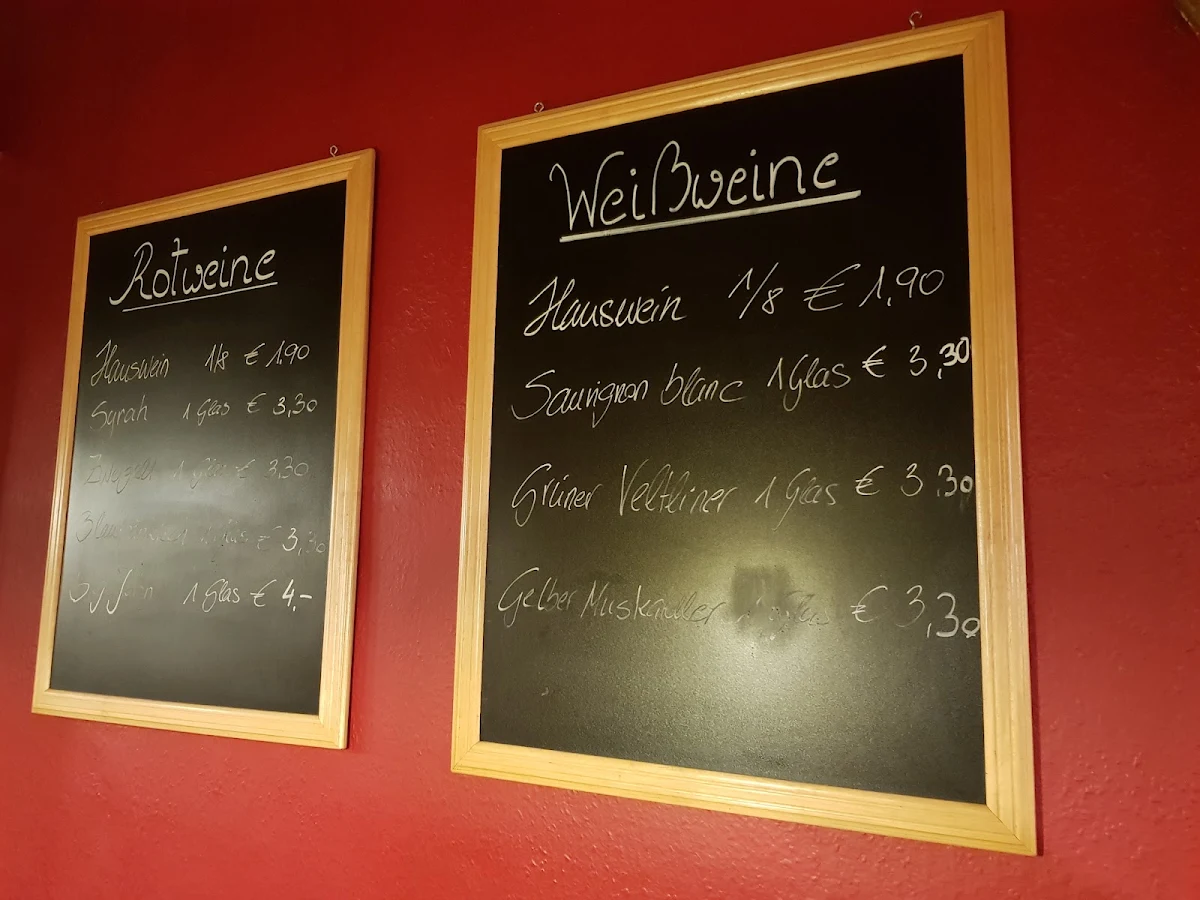 Rotweine
Hauswein 1/8 € 1,90
Syrah 1 Glas € 3,30
Zweigelt 1 Glas € 3,30
1 Glas € 3,30
1 Glas € 4,-
Weißweine
Hauswein 1/8 € 1,90
Sauvignon blanc 1 Glas € 3,30
Grüner Veltliner 1 Glas € 3,30
Gelber Muskateller 1 Glas € 3,30